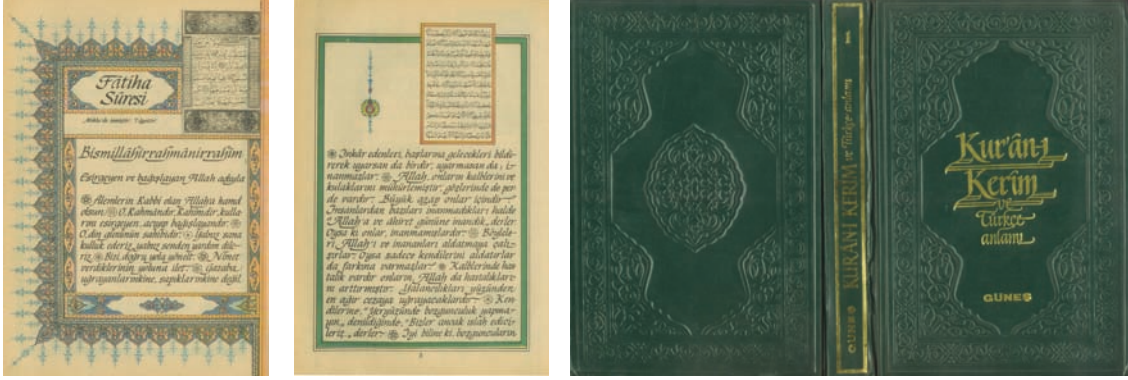 Fâtiha
Sûresi
Mekke'de inmiştir. 7 âyettir.
Bismillâhirrahmânirrahîm
Esirgeyen ve bağışlayan Allah adıyla
Âlemlerin Rabbi olan Allah'a hamd
olsun. O, Rahmândır, Rahîmdir, kulla-
rını esirgeyen, acıyıp bağışlayandır.
O, din gününün sahibidir. Yalnız sana
kulluk ederiz, yalnız senden yardım dile-
riz. Bizi, doğru yola yönelt. Nimet
verdiklerinin yoluna ilet. Gazaba
uğrayanlarınkine, sapıklarınkine değil.
İnkâr edenleri, başlarına gelecekleri bildi-
rerek uyarsan da birdir, uyarmasan da, i-
nanmazlar. Allah, onların kalblerini ve
kulaklarını mühürlemiştir, gözlerinde de per
de vardır. Büyük azap onlar içindir.
İnsanlardan bazıları inanmadıkları halde
Allah'a ve âhiret gününe inandık, derler.
Oysa ki onlar, inanmamışlardır. Böylele-
ri, Allah'ı ve inananları aldatmaya çalı-
şırlar. Oysa sadece kendilerini aldatırlar
da farkına varmazlar. Kalblerinde has
talık vardır onların, Allah da hastalıkları-
nı arttırmıştır. Yalancılıkları yüzünden
en ağır cezaya uğrayacaklardır. Ken-
dilerine, "Yeryüzünde bozgunculuk yapma-
yın„ denildiğinde, "Bizler ancak ıslah edici-
leriz„ derler. İyi biline ki, bozguncuların
GÜNEŞ KUR'ÂN-I KERÎM ve Türkçe anlamı 1
Kur'ân-ı
Kerîm
ve
Türkçe
anlamı
GÜNEŞ